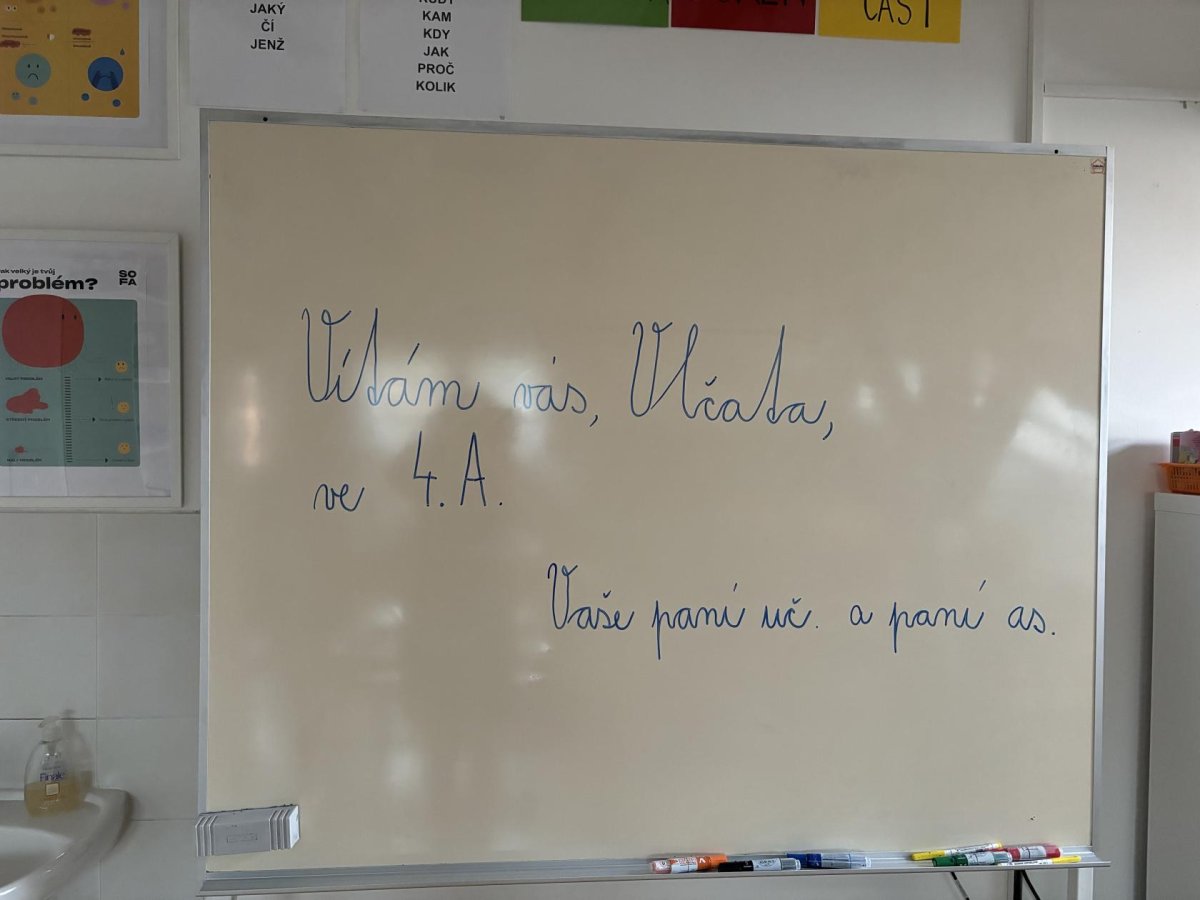 JAKÝ
ČÍ
JENŽ
KAM
KDY
JAK
PROČ
KOLIK
ČÁST
jak velký je tvůj
problém?
SO
FA
Vítám vás, Vlčata,
ve 4. A.
Vaše paní uč. a paní as.